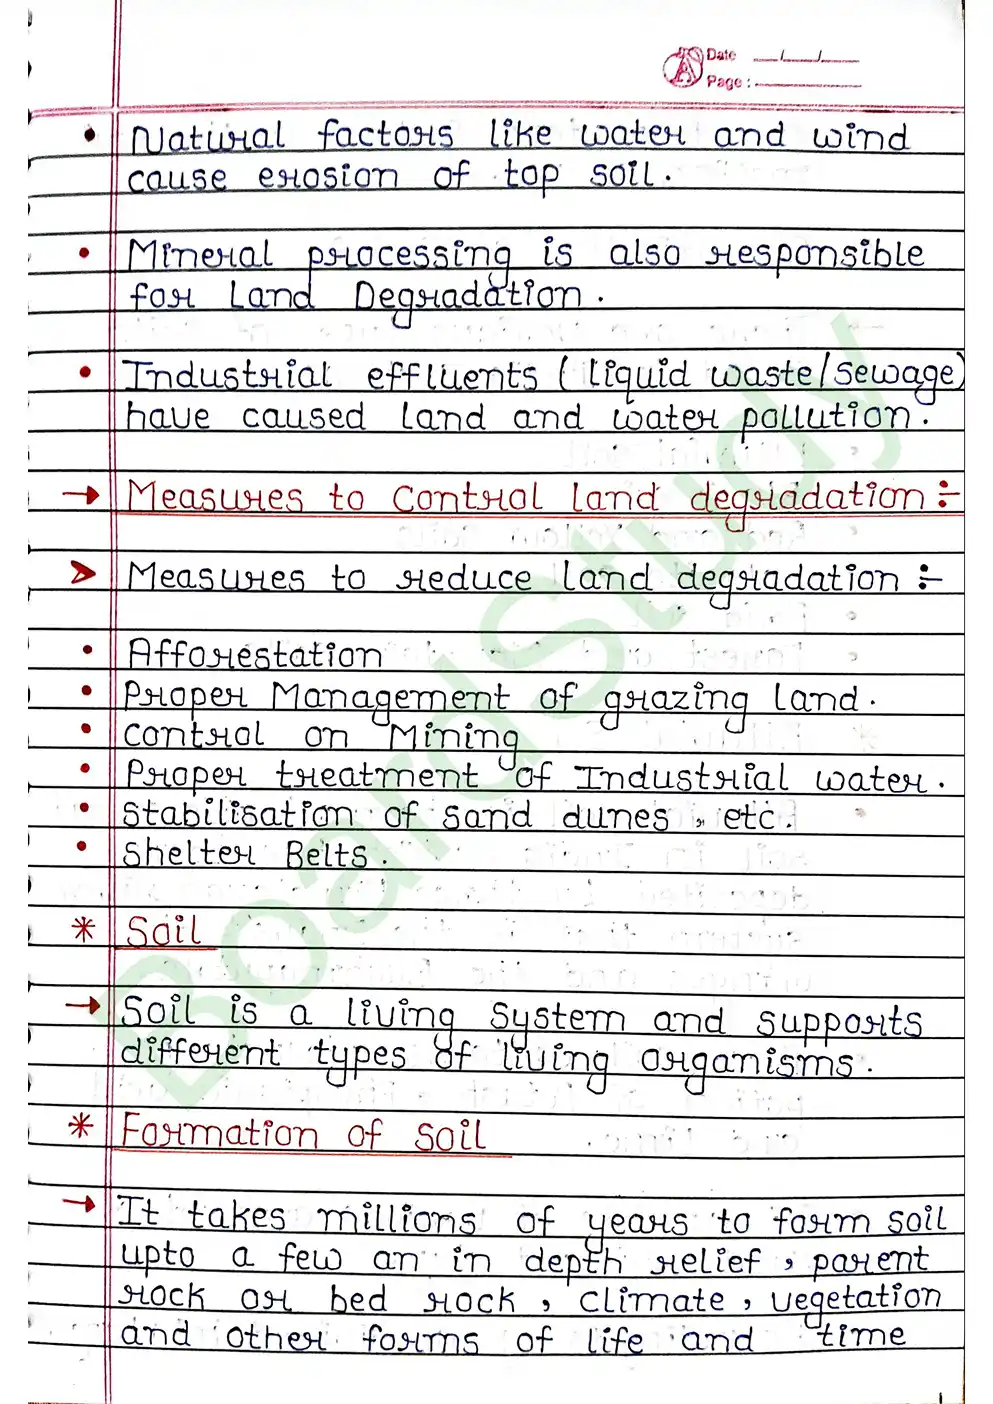 Date __/__/__
Page :
• Natural factors like water and wind
cause erosion of top soil.
• Mineral processing is also responsible
for Land Degradation.
• Industrial effluents (liquid waste/sewage)
have caused land and water pollution.
→ Measures to Control land degradation :-
➢ Measures to reduce land degradation :-
• Afforestation
• Proper Management of grazing land.
• control on Mining
• Proper treatment of Industrial water.
• stabilisation of sand dunes, etc.
• Shelter Belts.
* Soil
→ Soil is a living system and supports
different types of living organisms.
* Formation of soil
→ It takes millions of years to form soil
upto a few an in depth relief, parent
rock or bed rock, climate, vegetation
and other forms of life and time
BoardStudy